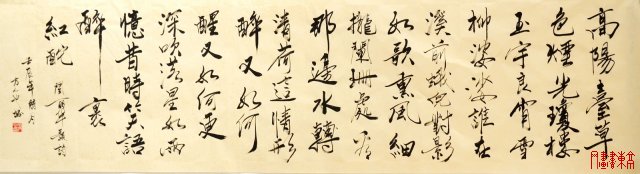 高陽臺草
色煙光瓊樓
玉宇良宵雪
柳婆娑誰在
溪前蛾兒對影
如歌熏風細
攏闌珊處看
那邊水轉
清荷這情形
醉又如何
醒又如何更
深吹落星如雨
憶昔時笑語
醉裏
紅酡
壬辰年